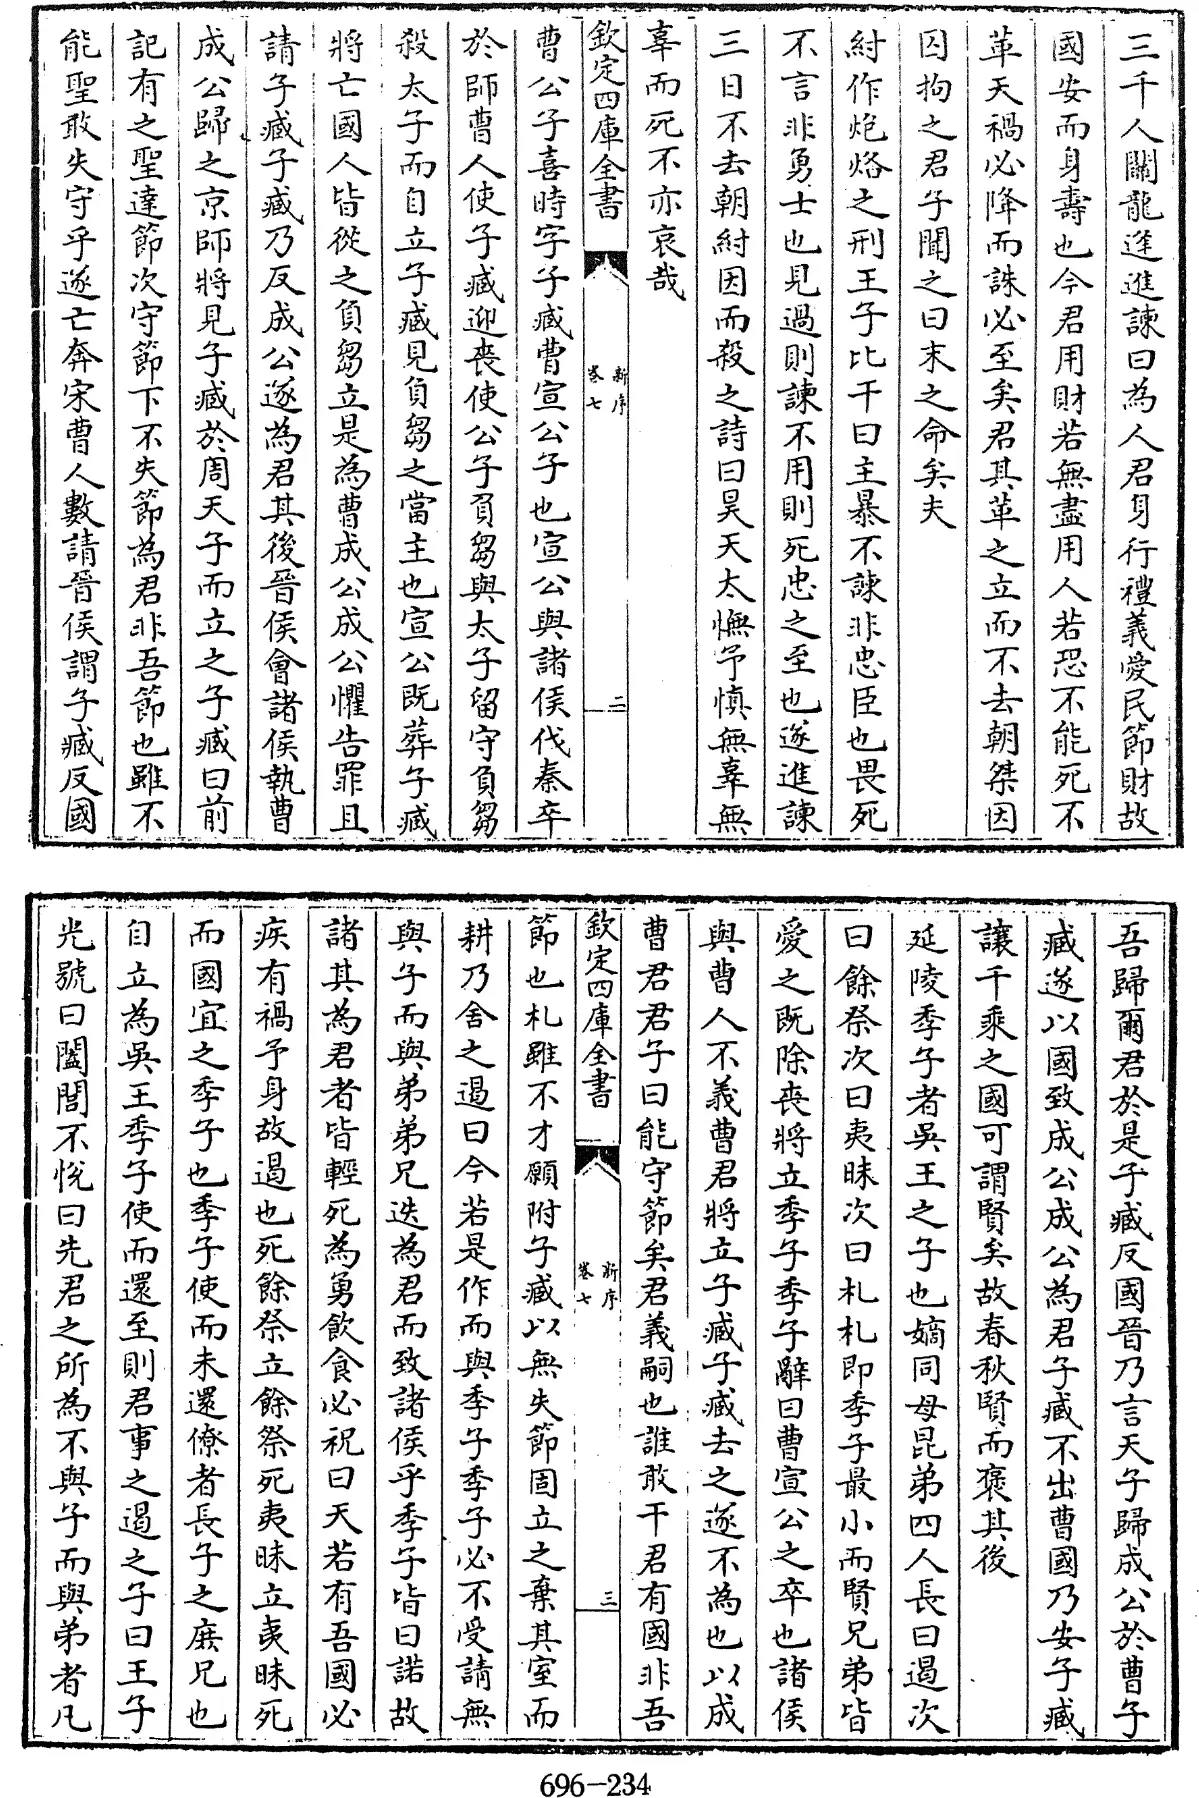 三千人關龍逄進諫曰為人君身行禮義愛民節財故
國安而身壽也今君用財若無盡用人若恐不能死不
革天禍必降而誅必至矣君其革之立而不去朝桀因
囚拘之君子聞之曰末之命矣夫
紂作炮烙之刑王子比干曰主暴不諫非忠臣也畏死
不言非勇士也見過則諫不用則死忠之至也遂進諫
三日不去朝紂因而殺之詩曰昊天太憮予慎無辜無
辜而死不亦哀哉
欽定四庫全書 新序 卷七 二
曹公子喜時字子臧曹宣公子也宣公與諸侯伐秦卒
於師曹人使子臧迎喪使公子負芻與太子留守負芻
殺太子而自立子臧見負芻之當主也宣公既葬子臧
將亡國人皆從之負芻立是為曹成公成公懼告罪且
請子臧子臧乃反成公遂為君其後晉侯會諸侯執曹
成公歸之京師將見子臧於周天子而立之子臧曰前
記有之聖達節次守節下不失節為君非吾節也雖不
能聖敢失守乎遂亡奔宋曹人數請晉侯謂子臧反國
吾歸爾君於是子臧反國晉乃言天子歸成公於曹子
臧遂以國致成公成公為君子臧不出曹國乃安子臧
讓千乘之國可謂賢矣故春秋賢而褒其後
延陵季子者吳王之子也嫡同母昆弟四人長曰遏次
曰餘祭次曰夷昧次曰札札即季子最小而賢兄弟皆
愛之既除喪將立季子季子辭曰曹宣公之卒也諸侯
與曹人不義曹君將立子臧子臧去之遂不為也以成
曹君君子曰能守節矣君義嗣也誰敢干君有國非吾
欽定四庫全書 新序 卷七 三
節也札雖不才願附子臧以無失節固立之棄其室而
耕乃舍之遏曰今若是作而與季子季子必不受請無
與子而與弟弟兄迭為君而致諸侯乎季子皆曰諾故
諸其為君者皆輕死為勇飲食必祝曰天若有吾國必
疾有禍予身故遏也死餘祭立餘祭死夷昧立夷昧死
而國宜之季子也季子使而未還僚者長子之庶兄也
自立為吳王季子使而還至則君事之遏之子曰王子
光號曰闔閭不悅曰先君之所為不與子而與弟者凡
696-234